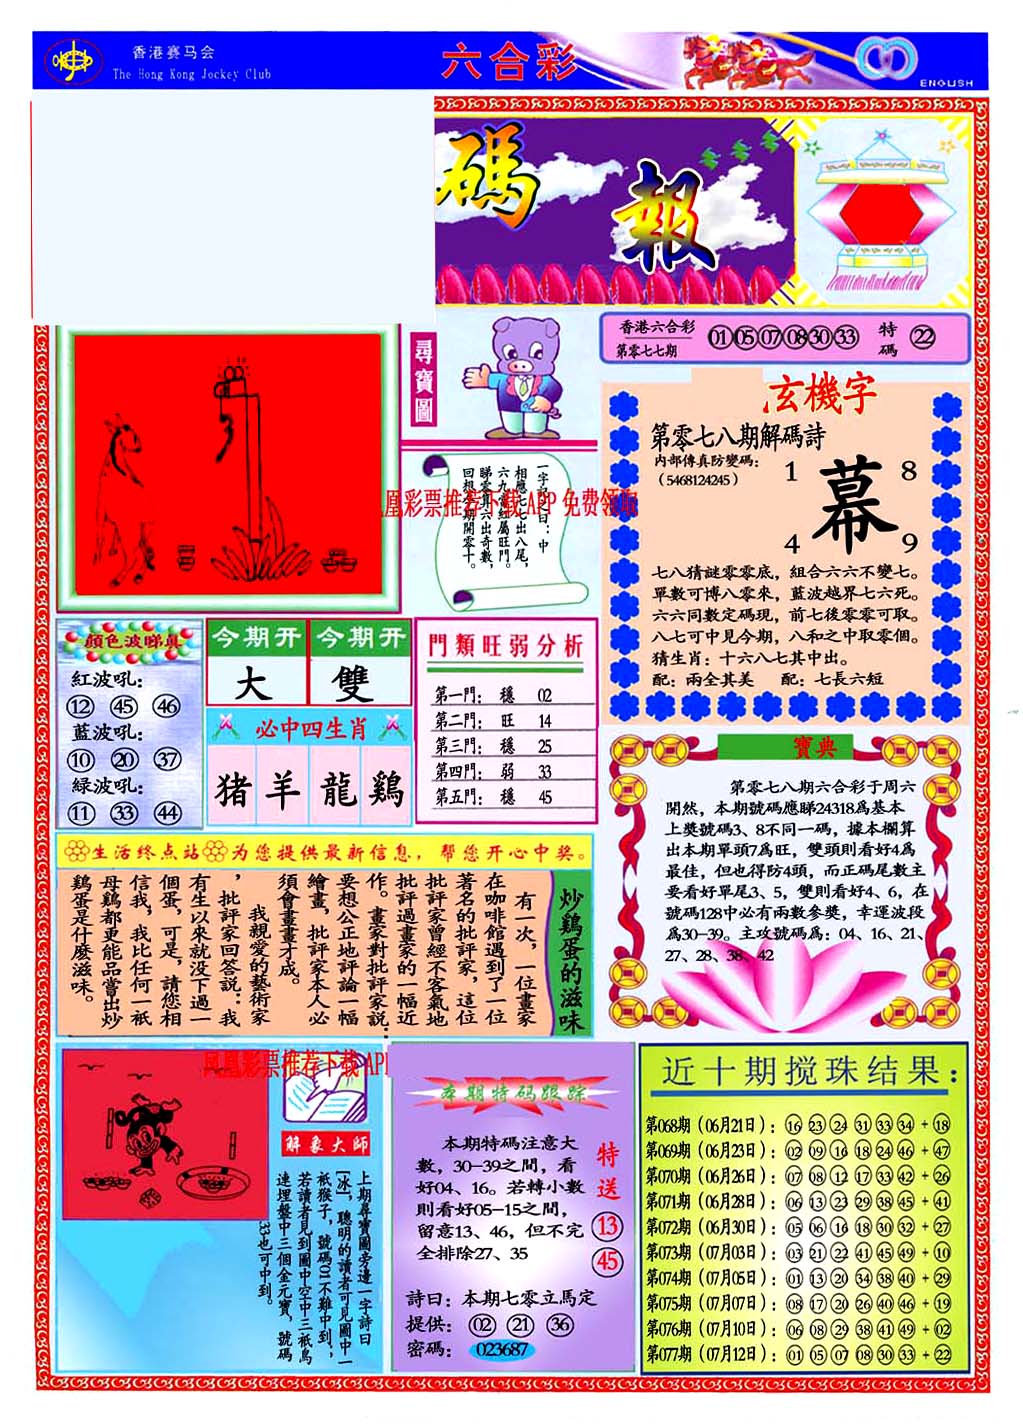 香港赛马会
The Hong Kong Jockey Club
六合彩
ENGLISH
碼報
尋寶圖
香港六合彩
第零七七期
01 05 07 08 30 33
特碼
22
玄機字
第零七八期解碼詩
内部傳真防變碼:
(5468124245)
1 8
幕
4 9
七八猜謎零零底，組合六六不變七。
單數可博八零來，藍波越界七六死。
六六同數定碼現，前七後零零可取。
八七可中見今期，八和之中取零個。
猜生肖：十六八七其中出。
配：兩全其美 配：七長六短
相應七七出八尾，
回想今期開零十。
凰彩票推荐下载 APP 免费领取
顔色波睇真
紅波吼：
12 45 46
藍波吼：
10 20 37
緑波吼：
11 33 44
今期开
大
今期开
雙
必中四生肖
猪 羊 龍 鷄
門類旺弱分析
第一門： 穩 02
第二門： 旺 14
第三門： 穩 25
第四門： 弱 33
第五門： 穩 45
寶典
第零七八期六合彩于周六
開然，本期號碼應睇24318爲基本
上獎號碼3、8不同一碼，據本欄算
出本期單頭7爲旺，雙頭則看好4爲
最佳，但也得防4頭，而正碼尾數主
要看好單尾3、5，雙則看好4、6，在
號碼128中必有兩數參獎，幸運波段
爲30-39。主攻號碼爲：04、16、21、
27、28、38、42
生活终点站 为您提供最新信息，帮您开心中奖。
炒鷄蛋的滋味
有一次，一位畫家
在咖啡館遇到了一位
著名的批評家，這位
批評家曾經不客氣地
批評過畫家的一幅近
作。畫家對批評家説：
要想公正地評論一幅
繪畫，批評家本人必
須會畫畫才成。
我親愛的藝術家
，批評家回答説：我
有生以來就没下過一
個蛋，可是，請您相
信我，我比任何一衹
母鷄都更能品嘗出炒
鷄蛋是什麽滋味。
凤凰彩票推荐下载 APP
解象大師
上期尋寶圖旁邊一字詩曰
[冰]，聰明的讀者可見圖中一
衹猴子，號碼01不難中到，
若讀者見到圖中空中三衹鳥
連埋盤中三個金元寶，號碼
33也可中到。
本期特码跟踪
本期特碼注意大
數，30-39之間，看
好04、16。若轉小數
則看好05-15之間，
留意13、46，但不完
全排除27、35
特送
13
45
詩曰：本期七零立馬定
提供： 02 21 36
密碼： 023687
近十期搅珠结果：
第068期（06月21日）：16 23 24 31 33 34 + 18
第069期（06月23日）：02 09 16 18 24 46 + 47
第070期（06月26日）：07 08 12 17 33 42 + 26
第071期（06月28日）：06 13 23 29 38 45 + 41
第072期（06月30日）：05 06 16 18 30 32 + 27
第073期（07月03日）：03 21 22 41 45 49 + 10
第074期（07月05日）：01 13 20 34 38 40 + 29
第075期（07月07日）：08 17 20 26 40 46 + 19
第076期（07月10日）：06 08 29 38 41 49 + 02
第077期（07月12日）：01 05 07 08 30 33 + 22